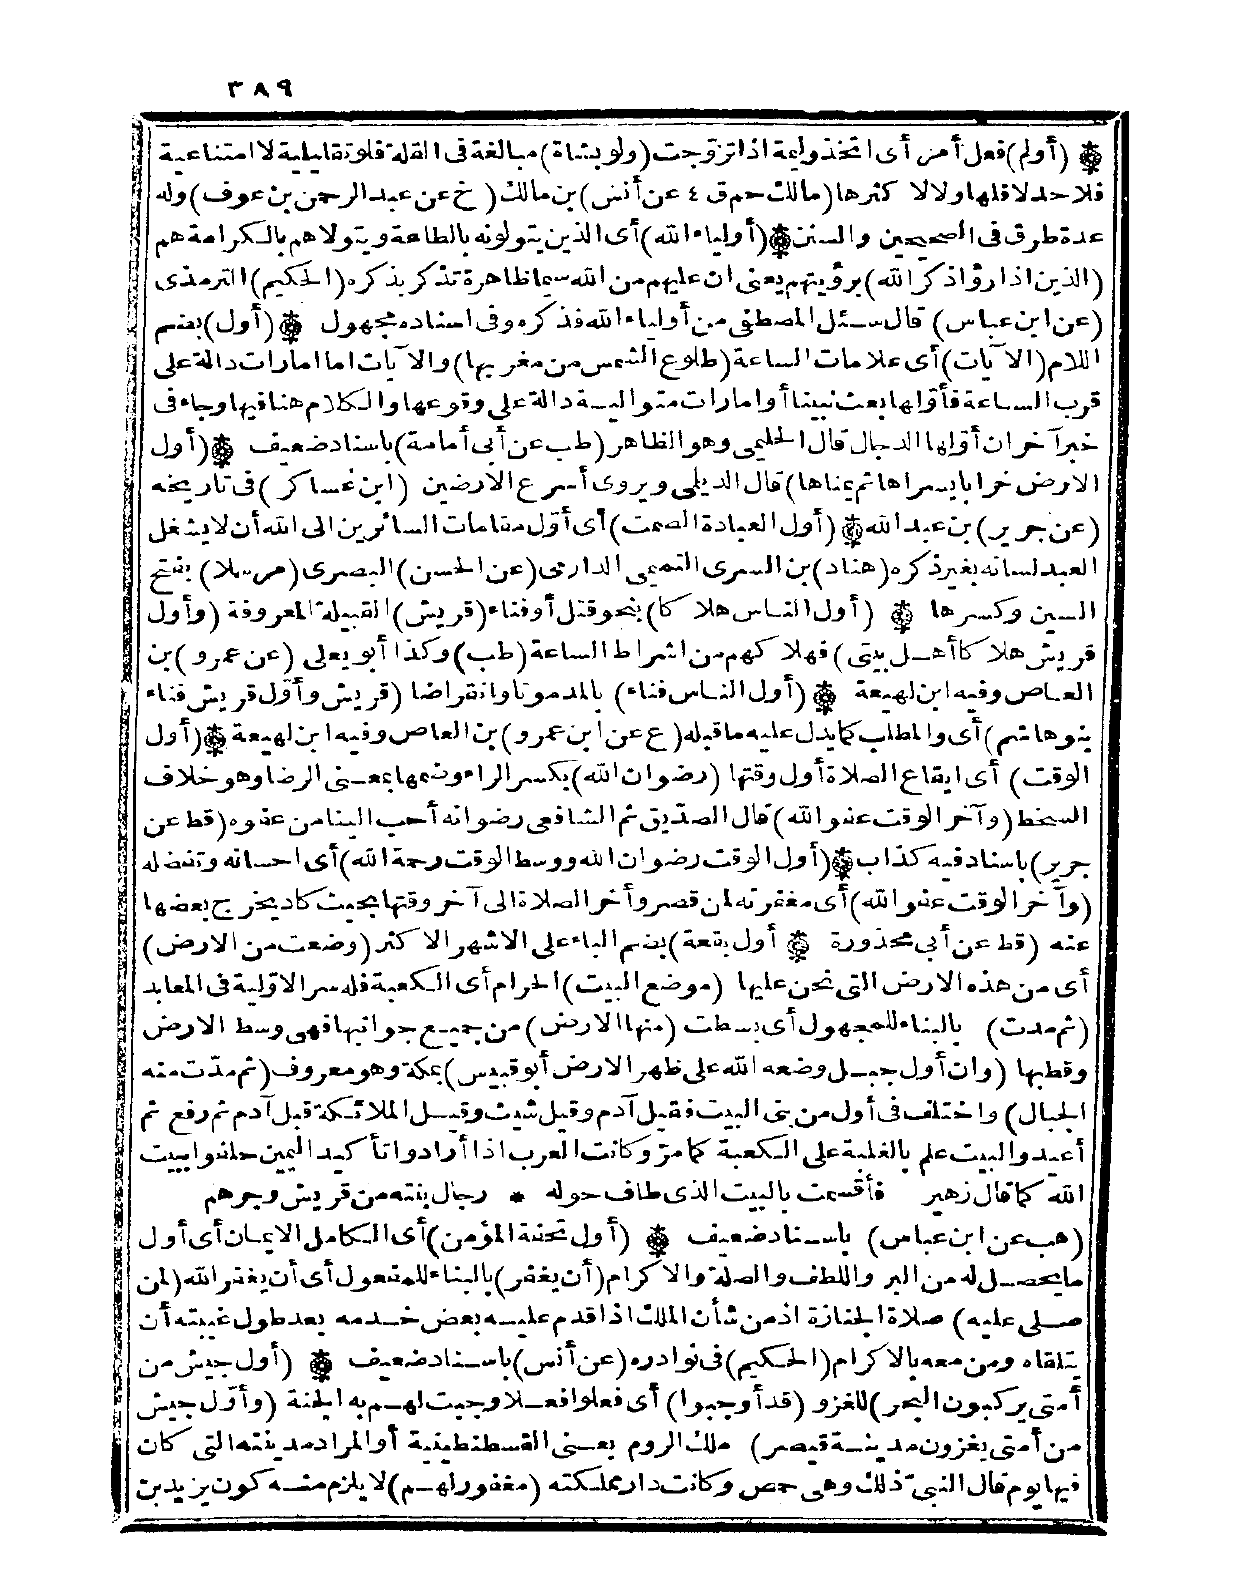 ٣٨٩
(أولم) فعل أمر أى اتخذ وليمة اذا تزوجت (ولو بشاة) مبالغة فى القلة فلو تقليلية لا امتناعية
فلا حد لاقلها ولا لا كثرها (مالك حم ق ٤ عن أنس) بن مالك (خ عن عبد الرحمن بن عوف) وله
عدة طرق فى الصحيحين والسنن (أولياء الله) أى الذين يتولونه بالطاعة ويتولاهم بالكرامة هم
(الذين اذا رؤا ذكر الله) برؤيتهم يعنى ان عليهم من الله سيما ظاهرة تذكر بذكره (الحكيم) الترمذى
(عن ابن عباس) قال سئل المصطفى من أولياء الله فذكره وفى اسناده مجهول (أول) بضم
اللام (الآيات) أى علامات الساعة (طلوع الشمس من مغربها) والآيات اما امارات دالة على
قرب الساعة فأولها بعث نبينا أو امارات متوالية دالة على وقوعها والكلام هنا فيها وجاء فى
خبر آخر ان أولها الدجال قال الحليمى وهو الظاهر (طب عن أبى أمامة) باسناد ضعيف (أول
الارض خرابا يسراها ثم يمناها) قال الديلمى ويروى أسرع الارضين (ابن عساكر) فى تاريخه
(عن جرير) بن عبد الله (أول العبادة الصمت) أى أول مقامات السائرين الى الله أن لا يشغل
العبد لسانه بغير ذكره (هناد) بن السرى التميمى الدارمى (عن الحسن) البصرى (مرسلا) بفتح
السين وكسرها (أول الناس هلاكا) بنحو قتل أو فناء (قريش) القبيلة المعروفة (وأول
قريش هلاكا أهل بيتى) فهلاكهم من اشراط الساعة (طب) وكذا أبو يعلى (عن عمرو) بن
العاص وفيه ابن لهيعة (أول الناس فناء) بالمد موتا وانقراضا (قريش وأول قريش فناء
بنو هاشم) أى والمطلب كما يدل عليه ما قبله (ع عن ابن عمرو) بن العاص وفيه ابن لهيعة (أول
الوقت) أى ايقاع الصلاة أول وقتها (رضوان الله) بكسر الراء وضمها بمعنى الرضا وهو خلاف
السخط (وآخر الوقت عفو الله) قال الصديق ثم الشافعى رضوانه أحب الينا من عفوه (قط عن
جرير) باسناد فيه كذاب (أول الوقت رضوان الله ووسط الوقت رحمة الله) أى احسانه وتفضله
(وآخر الوقت عفو الله) أى مغفرته لمن قصر وأخر الصلاة الى آخر وقتها بحيث كاد يخرج بعضها
عنه (قط عن أبى محذورة أول بقعة) بضم الباء على الاشهر الاكثر (وضعت من الارض)
أى من هذه الارض التى نحن عليها (موضع البيت) الحرام أى الكعبة فله سر الاولية فى المعابد
(ثم مدت) بالبناء للمجهول أى بسطت (منها الارض) من جميع جوانبها فهى وسط الارض
وقطبها (وان أول جبل وضعه الله على ظهر الارض أبو قبيس) بمكة وهو معروف (ثم مدت منه
الجبال) واختلف فى أول من بنى البيت فقيل آدم وقيل شيث وقيل الملائكة قبل آدم ثم رفع ثم
أعيد والبيت علم بالغلبة على الكعبة كما مر وكانت العرب اذا أرادوا تأكيد اليمين حلفوا ببيت
الله كما قال زهير فأقسمت بالبيت الذى طاف حوله * رجال بنته من قريش وجرهم
(هب عن ابن عباس) باسناد ضعيف (أول تحفة المؤمن) أى الكامل الايمان أى أول
ما يحصل له من البر واللطف والصلة والاكرام (أن يغفر) بالبناء للمفعول أى أن يغفر الله (لمن
صلى عليه) صلاة الجنازة اذ من شأن الملك اذا قدم عليه بعض خدمه بعد طول غيبته أن
يتلقاه ومن معه بالاكرام (الحكيم) فى نوادره (عن أنس) باسناد ضعيف (أول جيش من
أمتى يركبون البحر) للغزو (قد أوجبوا) أى فعلوا فعلا وجبت لهم به الجنة (وأول جيش
من أمتى يغزون مدينة قيصر) ملك الروم يعنى القسطنطينية أو المراد مدينته التى كان
فيها يوم قال النبى ذلك وهى حمص وكانت دار مملكته (مغفور لهم) لا يلزم منه كون يزيد بن